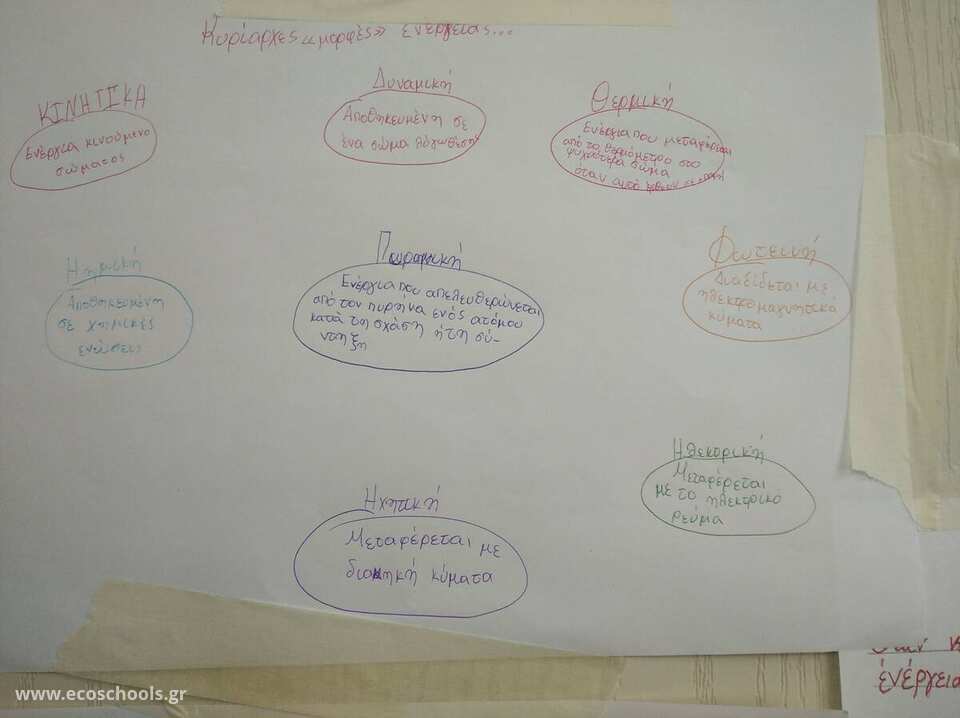 Κυρίαρχες «μορφές» ενέργειας...
ΚΙΝΗΤΙΚΑ
Ενέργεια κινούμενο
σώματος
Δυναμική
Αποθηκευμένη σε
ένα σώμα λόγω θεση
Θερμική
Ενέργεια που μεταφέρεται
από το θερμόμετρο στο
ψυχρότερο σώμα
όταν αυτά έρθουν σε
Αποθηκευμένη
σε χημικές
ενώσεις
Ενέργεια που απελευθερώνεται
από τον πυρήνα ενός ατόμου
κατά τη σχάση ή τη σύ-
ντηξη
Φωτεινή
Διαδίδεται με
ηλεκτρομαγνητικά
κύματα
Μεταφέρεται
με το ηλεκτρικό
ρεύμα
Ηχητική
Μεταφέρεται με
κύματα
ενέργεια
www.ecoschools.gr